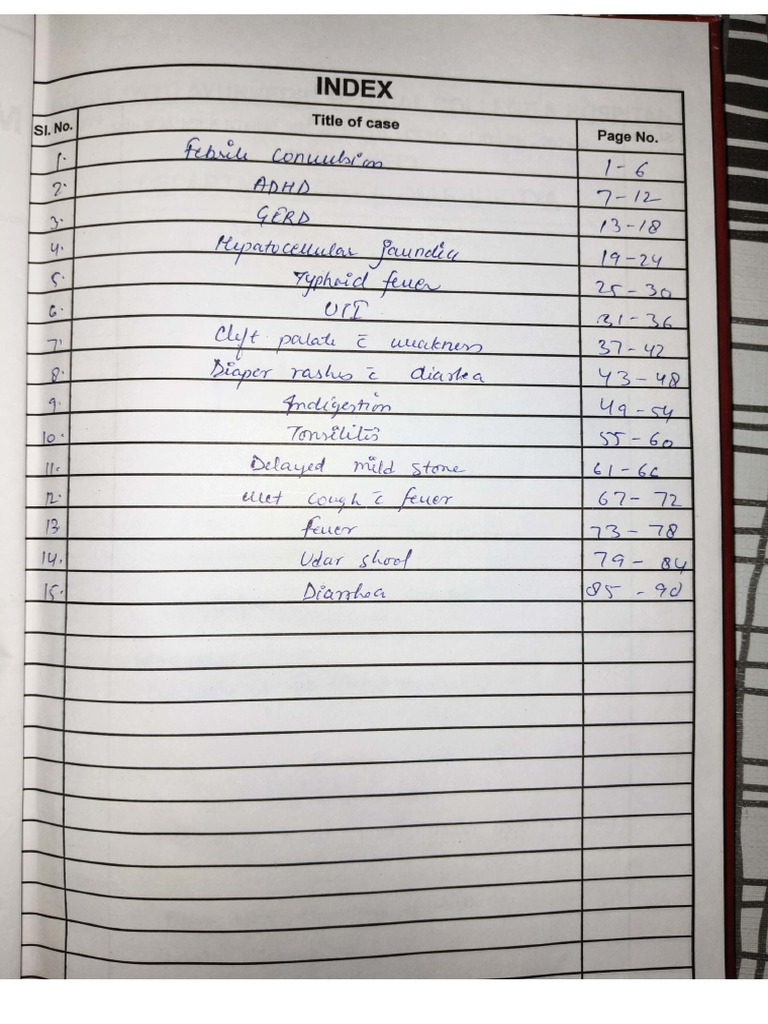 INDEX
Sl. No. Title of case Page No.
1. Febrile convulsion 1-6
2. ADHD 7-12
3. GERD 13-18
4. Hepatocellular jaundice 19-24
5. Typhoid fever 25-30
6. UTI 31-36
7. Cleft palate c̄ weakness 37-42
8. Diaper rashes c̄ diarhea 43-48
9. Indigestion 49-54
10. Tonsilitis 55-60
11. Delayed mild stone 61-66
12. Wet cough c̄ fever 67-72
13. fever 73-78
14. Udar shool 79-84
15. Diarrhea 85-90